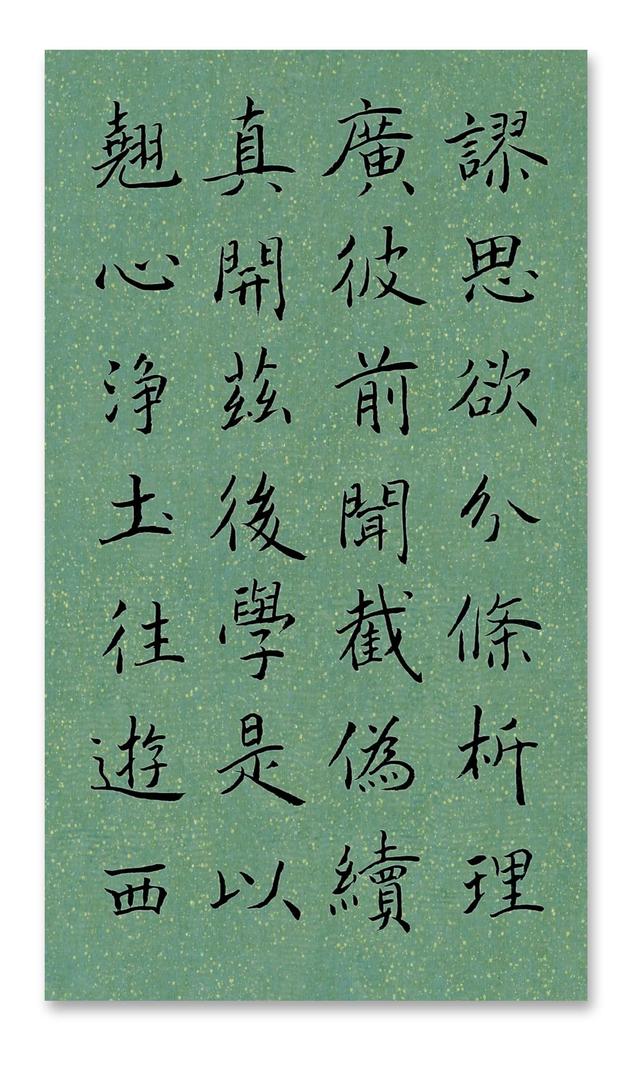 謬思欲分條析理
廣彼前聞截偽續
真開茲後學是以
翹心淨土往遊西